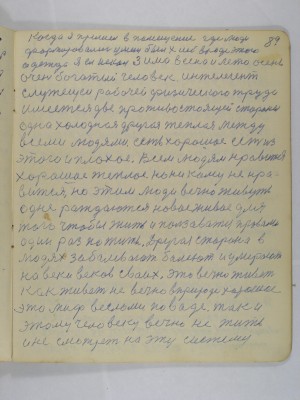 Когда я пришел в помещение где люди
89
Зима весна и лето осень
очен богатый человек интелегент
служещи рабочей физического труда
имеется две противостоящий стороны
одна холодная другая теплая между
всеми людями есть хорошае есть из
этого и плохое. Всем людям нравится
хорошае теплое но ни кому не нра-
вится, но этим люди вечно живуть
одне раждаются новое живое для
того чтобы жить и
один раз пожить. Другая сторона в
людях заболевают болеют и умирают
на веки веков своих. Это вечно живет
как живет не вечно в природе хорошее
это мир веселом по ваде. так и
этому человеку вечно не жить
и не смотреть на эту систему